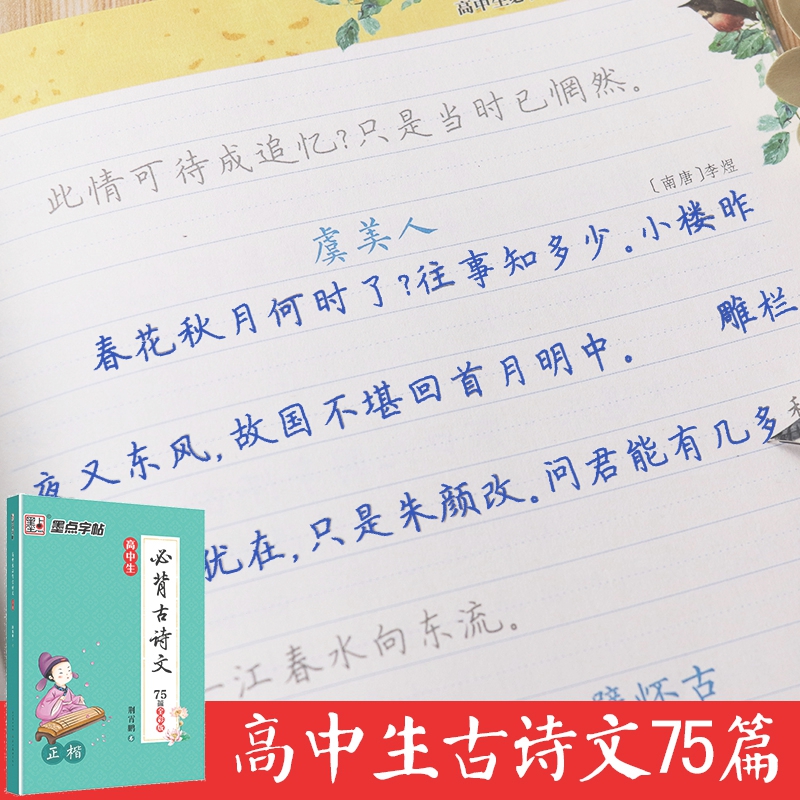 高中生必
此情可待成追忆?只是当时已惘然。
〔南唐〕李煜
虞美人
春花秋月何时了?往事知多少。小楼昨
夜又东风,故国不堪回首月明中。 雕栏
犹在,只是朱颜改。问君能有几多
一江春水向东流。
壁怀古
墨点字帖
高中生
必背古诗文
75篇
荆霄鹏
正楷
高中生古诗文75篇